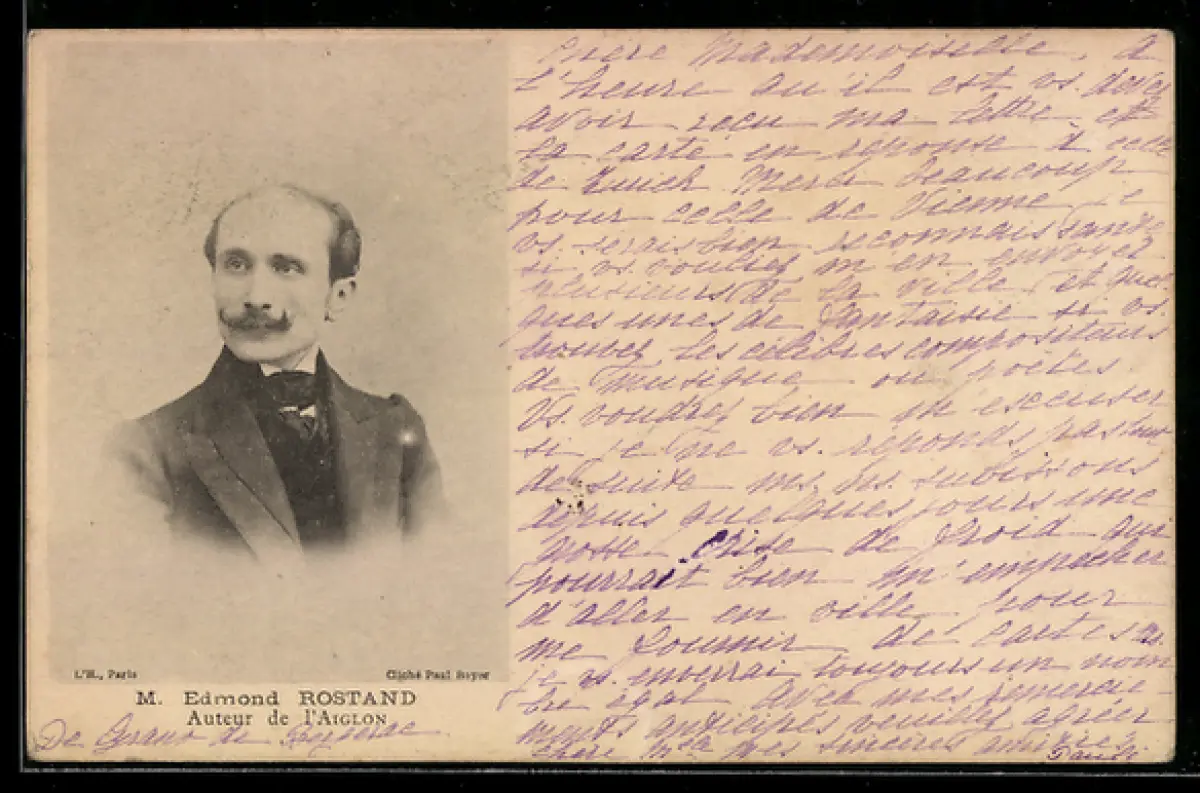 L'H., Paris
Cliché Paul Boyer
M. Edmond ROSTAND
Auteur de l'AIGLON
De Cyrano de Bergerac
Chère Mademoiselle, à
l'heure qu'il est vs. devez
avoir reçu ma lettre et
la carte en réponse à celle
de Zurich. Merci beaucoup
pour celle de Vienne, je
vs. serais bien reconnaissante
si vs. vouliez m'en envoyer
plusieurs de la ville, et quel
ques unes de fantaisie si vs.
trouvez, les célèbres compositeurs
de musique ou poètes.
Vs. voudrez bien m'excuser
si je ne vs. réponds pas tout
de suite ms. ns. subissons
depuis quelques jours une
grosse crise de froid qui
pourrait bien m'empêcher
d'aller en ville pour
me fournir de cartes
je vs. enverrai toujours un nom
bre égal avec mes remercie-
ments anticipés veuillez agréer
chère Mselle mes sincères amitiés